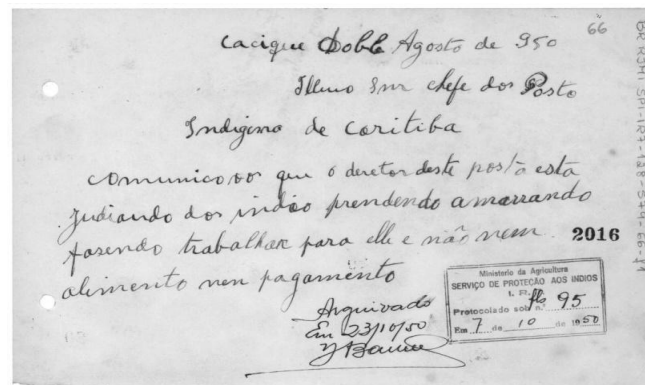 66
Cacique Doble Agosto de 950
Illmo Snr chefe dos Posto
Indigina de Coritiba
comunico vos que o deretor deste posto esta
judiando dos indio prendendo amarrando
fazendo trabalhar para elle e não nem
alimento nen pagamento
2016
Ministerio da Agricultura
SERVIÇO DE PROTEÇÃO AOS INDIOS
I. R. 7
Protocolado sob n.º fls 95
Em 7 de 10 de 1950
Arquivado
Em 23/10/50